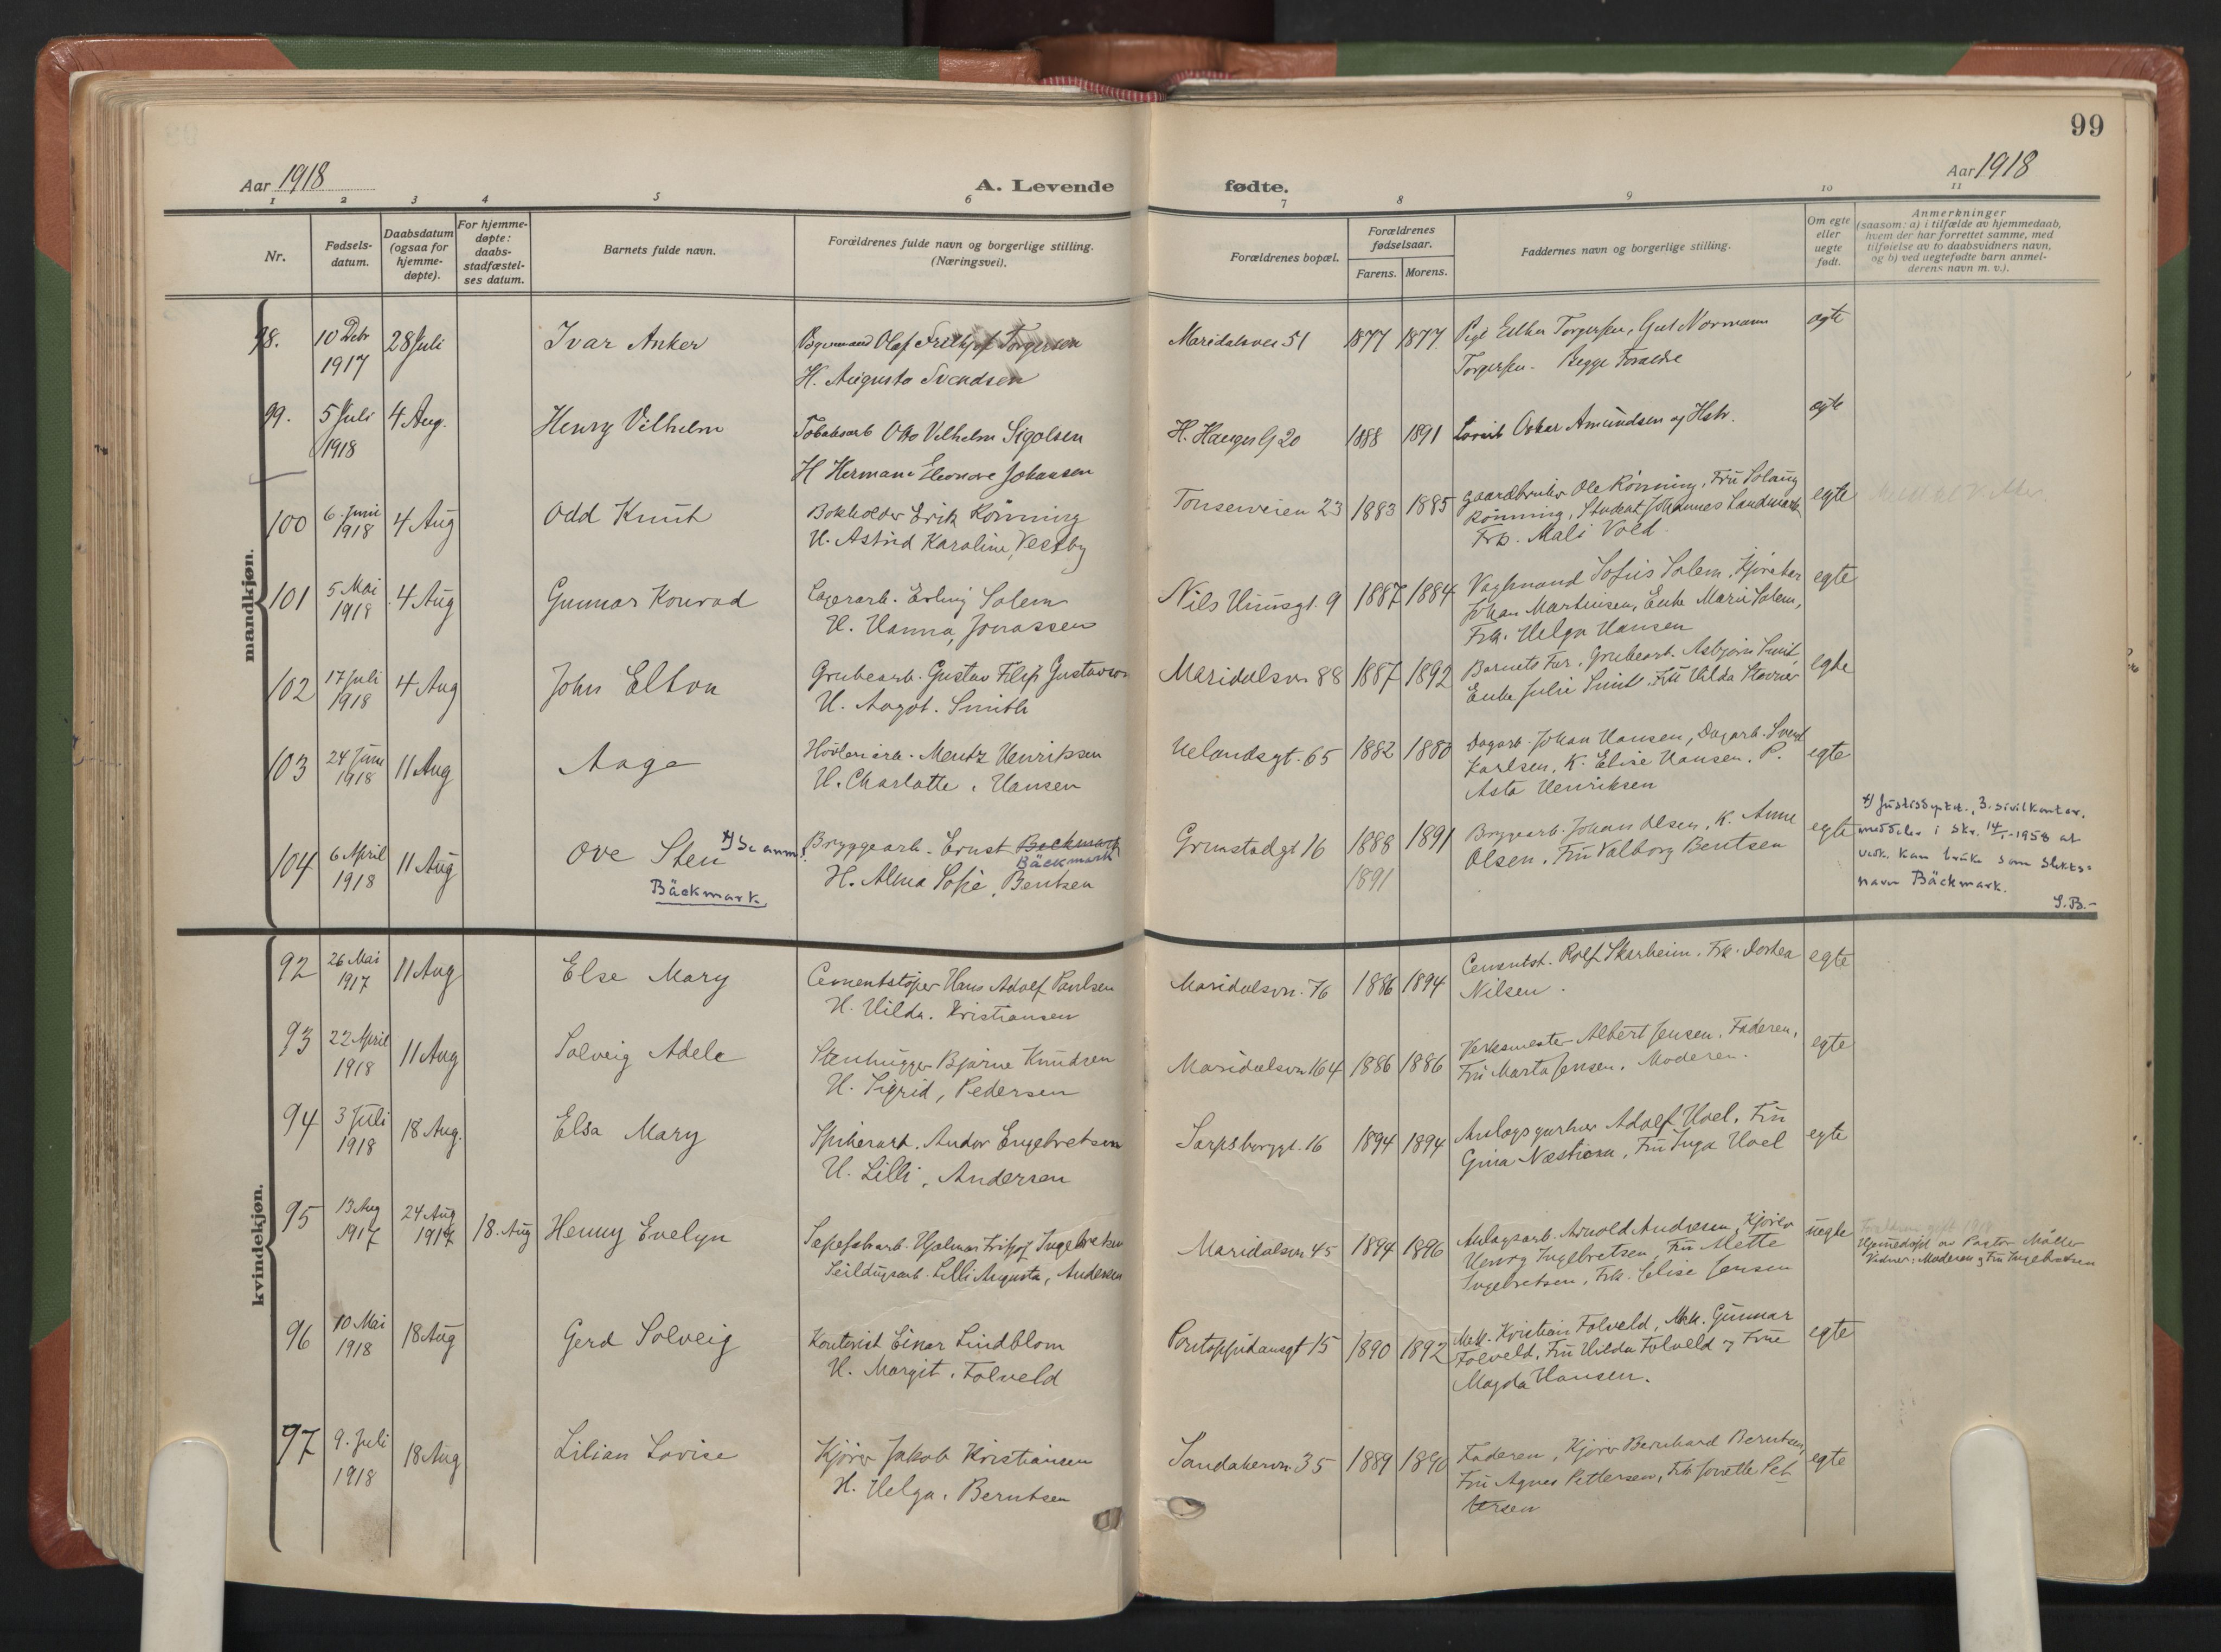 99
Aar 1918
A. Levende fødte.
Aar 1918
1 2 3 4 5 6 7 8 9 10 11
Nr.
Fødsels-
datum.
Daabsdatum
(ogsaa for
hjemme-
døpte).
For hjemme-
døpte:
daabs-
stadfæstel-
ses datum.
Barnets fulde navn.
Forældrenes fulde navn og borgerlige stilling.
(Næringsvei).
Forældrenes bopæl.
Forældrenes
fødselsaar.
Farens. Morens.
Faddernes navn og borgerlige stilling.
Om egte
eller
uegte
født.
Anmerkninger
(saasom: a) i tilfælde av hjemmedaab,
hvem der har forrettet samme, med
tilføielse av to daabsvidners navn,
og b) ved uegtefødte barn anmel-
derens navn m. v.).
mandkjøn.
98. 10 Debr 28 Juli Ivar Anker Olaf Torgersen Maridalsvei 51 1877 1877 Esther Torgersen, Normann egte
1917 H. Augusta Svendsen Torgersen. Begge Foraldre
99. 5 Juli 4 Aug. Henry Vilhelm Tobaksarb Otto Vilhelm Sigolsen H. Haugesg 20 1888 1891 Oskar Amundsen og Hstr. egte
1918 H Hermana Eleonore Johansen
100 6. Juni 4 Aug Odd Knut Bokholder Erik Rönning Tonsenveien 23 1883 1885 Gaardbruker Ole Rönning, Fru Solaug egte
1918 H. Astrid Karoline, Vestby Rönning, Student Johannes Landmark
Frk. Mali Vold
101 5 Mai 4 Aug Gunnar Konrad Lagerarb. Erling Solem Nils Huusgt. 9 1887 1884 Vagtmand Sofus Solem, Kjørekar egte
1918 H. Hanna, Jonassen Johan Martinsen, Enke Marie Solem,
Frk. Helga Hansen
102 17 Juli 4 Aug John Elton Grubearb. Gustav Filip Gustavson Maridalsvn 88 1887 1892 Barnets Far, Grubearb. Asbjørn Smit, egte
1918 H. Aagot. Smith Enke Julie Smith. Fru Hilda
103 24 Juni 11 Aug Aage Høvleriarb. Mentz Henriksen Uelandsgt. 65 1882 1880 Dagarb. Johan Hansen, Dagarb. egte
1918 H. Charlotte, Hansen Karlsen, K. Elise Hansen. P.
Asta Henriksen
104 6 April 11 Aug Ove Sten x) Se anm! Bryggearb. Ernst Backmark Grimstadgt 16 1888 1891 Bryggearb. Johan Olsen, K. Anne egte
1918 Bäckmark Bäckmark 1891 Olsen, Fru Valborg Bentsen
H. Alma Sofie, Bentsen
x) Justisdeptet., 3. sivilkontor,
meddeler i skr. 14/1-1958 at
vedk. kan bruke som slekts-
navn Bäckmark.
S.B.-
kvindekjøn.
92 26 Mai 11 Aug Else Mary Cementstøper Hans Adolf Paulsen Maridalsvn. 76 1886 1894 Cementst. Rolf Skarheim. Frk. Dorthea egte
1917 H. Hilda. Kristiansen Nilsen.
93 22 April 11 Aug Solveig Adele Stenhugger Bjarne Knudsen Maridalsvn 164 1886 1886 Verksmester Albert Jensen. Faderen, egte
1918 H. Sigrid, Pedersen Fru Marta Jensen, Moderen.
94 3 Juli 18 Aug. Elsa Mary Spikerarb. Andor Engebretsen Sarpsborggt. 16 1894 1894 Anlægsgartner Adolf Hoel, Fru egte
1918 H. Lilli, Andersen Gina Næstieren, Fru Inga Hoel
95 13 Aug 24 Aug 18. Aug Henny Evelyn Sæpefabrarb. Hjalmar Fritjof Ingebretsen Maridalsvn 45 1894 1896 Anlægsarb. Arnold Andresen, Kjører uegte
1917 1917 Seildugsarb. Lilli Augusta, Andersen Henry Ingebretsen, Fru Mette
Ingebretsen, Frk. Elise Jensen
Hjemmedøpt av Pastor Møller
Vidner: Moderen og Fru Ingebretsen
96 10 Mai 18 Aug Gerd Solveig Kontorist Einar Lindblom Pontoppidansgt 15 1890 1892 Mek. Kristian Folveld, Mek. Gunnar egte
1918 H. Margit, Folveld Folveld, Fru Hilda Folveld og Frue
Magda Hansen.
97 9. Juli 18 Aug Lilian Lovise Kjører Jakob Kristiansen Sandakervn 35 1889 1890 Faderen, Kjører Bernhard Berntsen, egte
1918 H. Helga. Berntsen Fru Agnes Pettersen, Frk Pet-
tersen